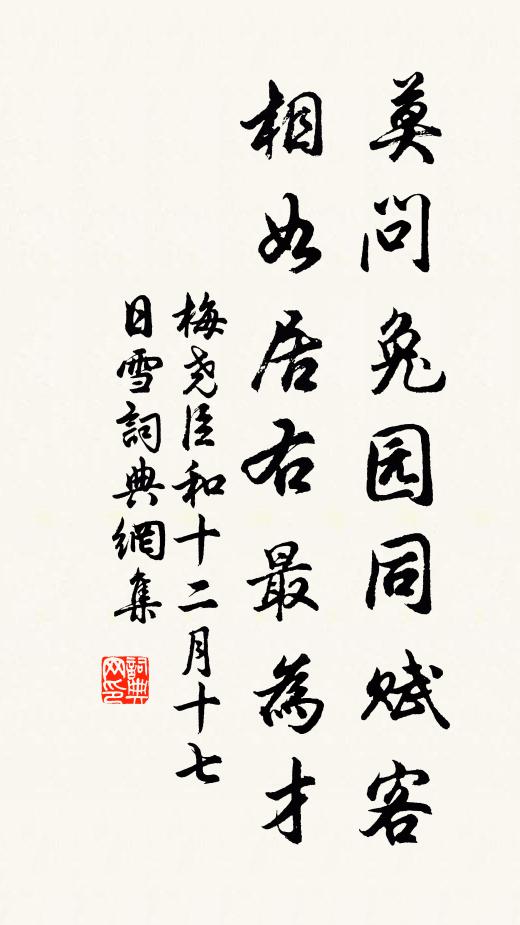 莫問兔园同赋客
相如居右最為才
梅尧臣和十二月十七
日雪詞典網集
詞典网印